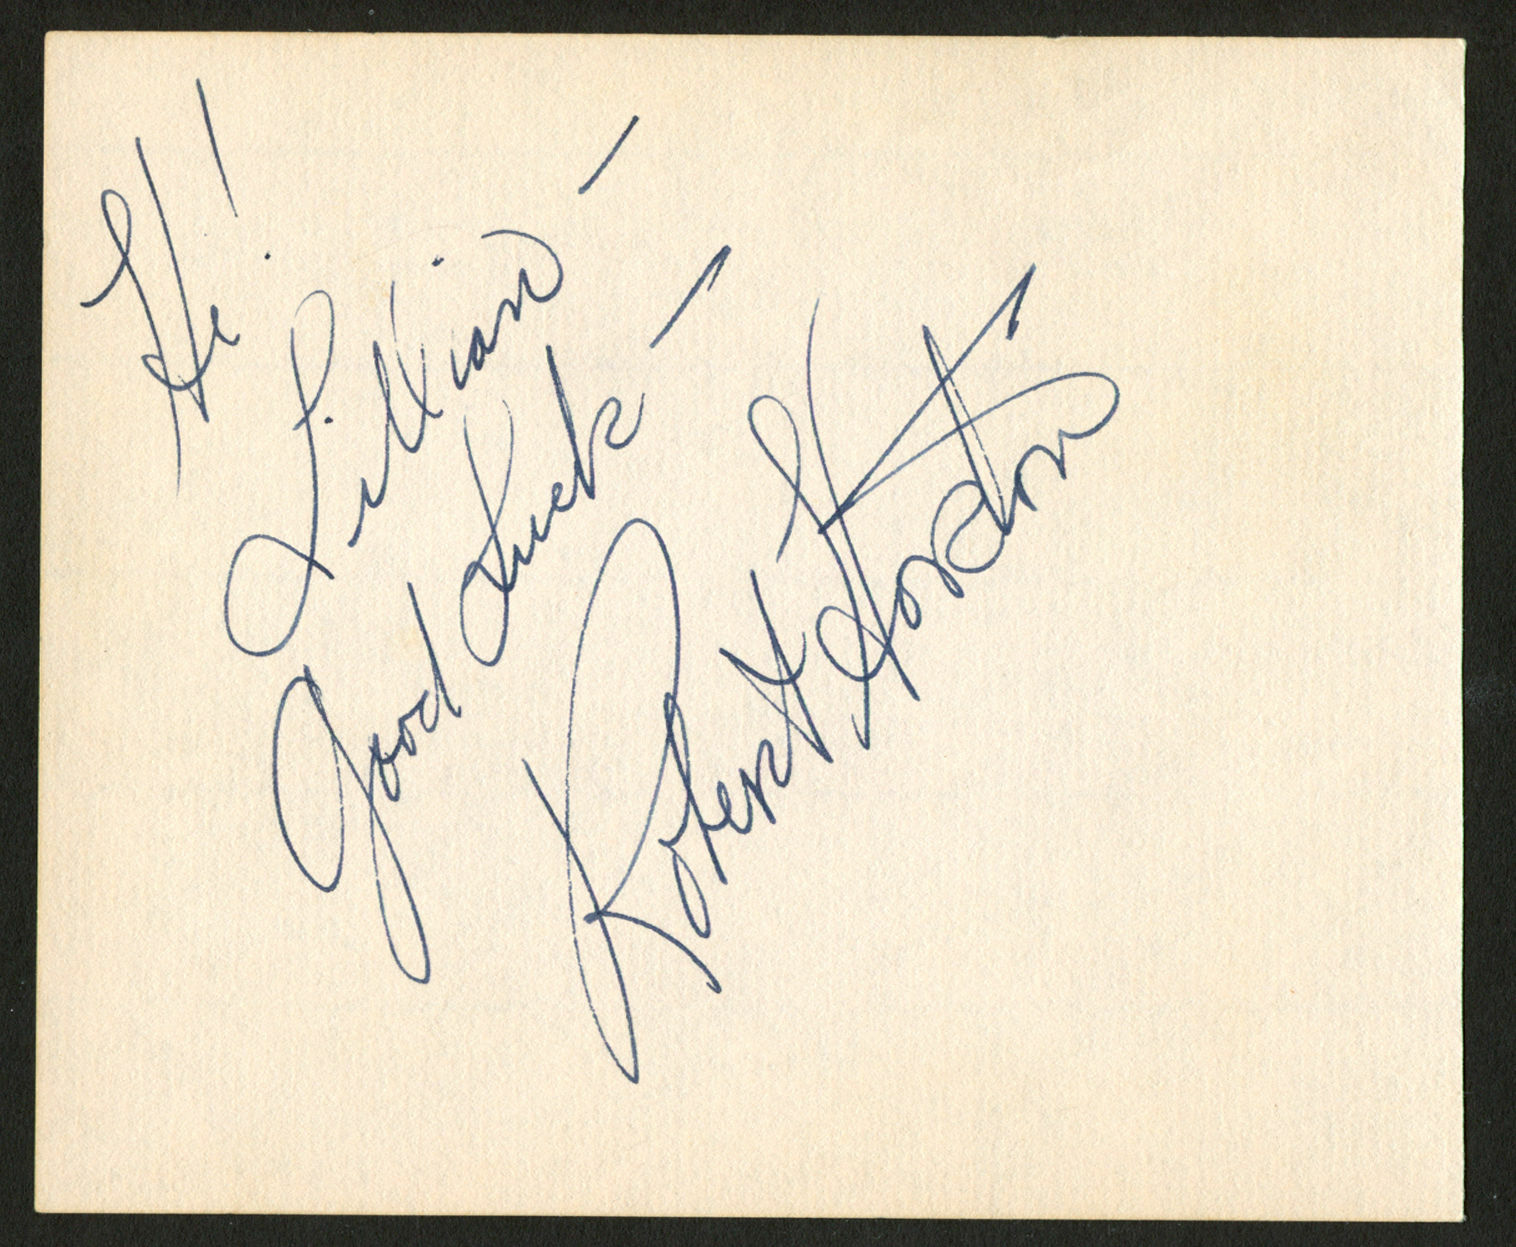 Hi!
Lillian —
Good Luck —
Robert Horton